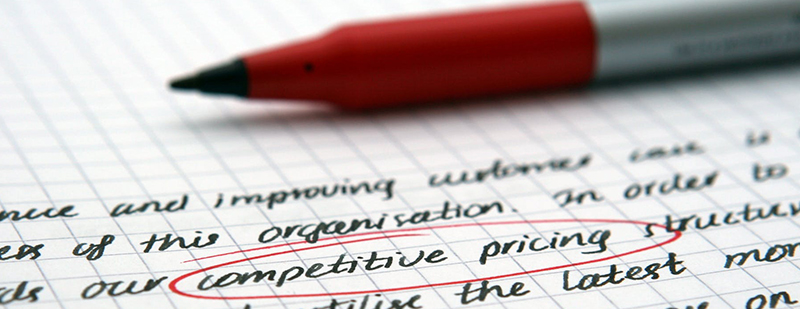 and improving customer care is
of this organisation. In order to
our competitive pricing
utilise the latest
on